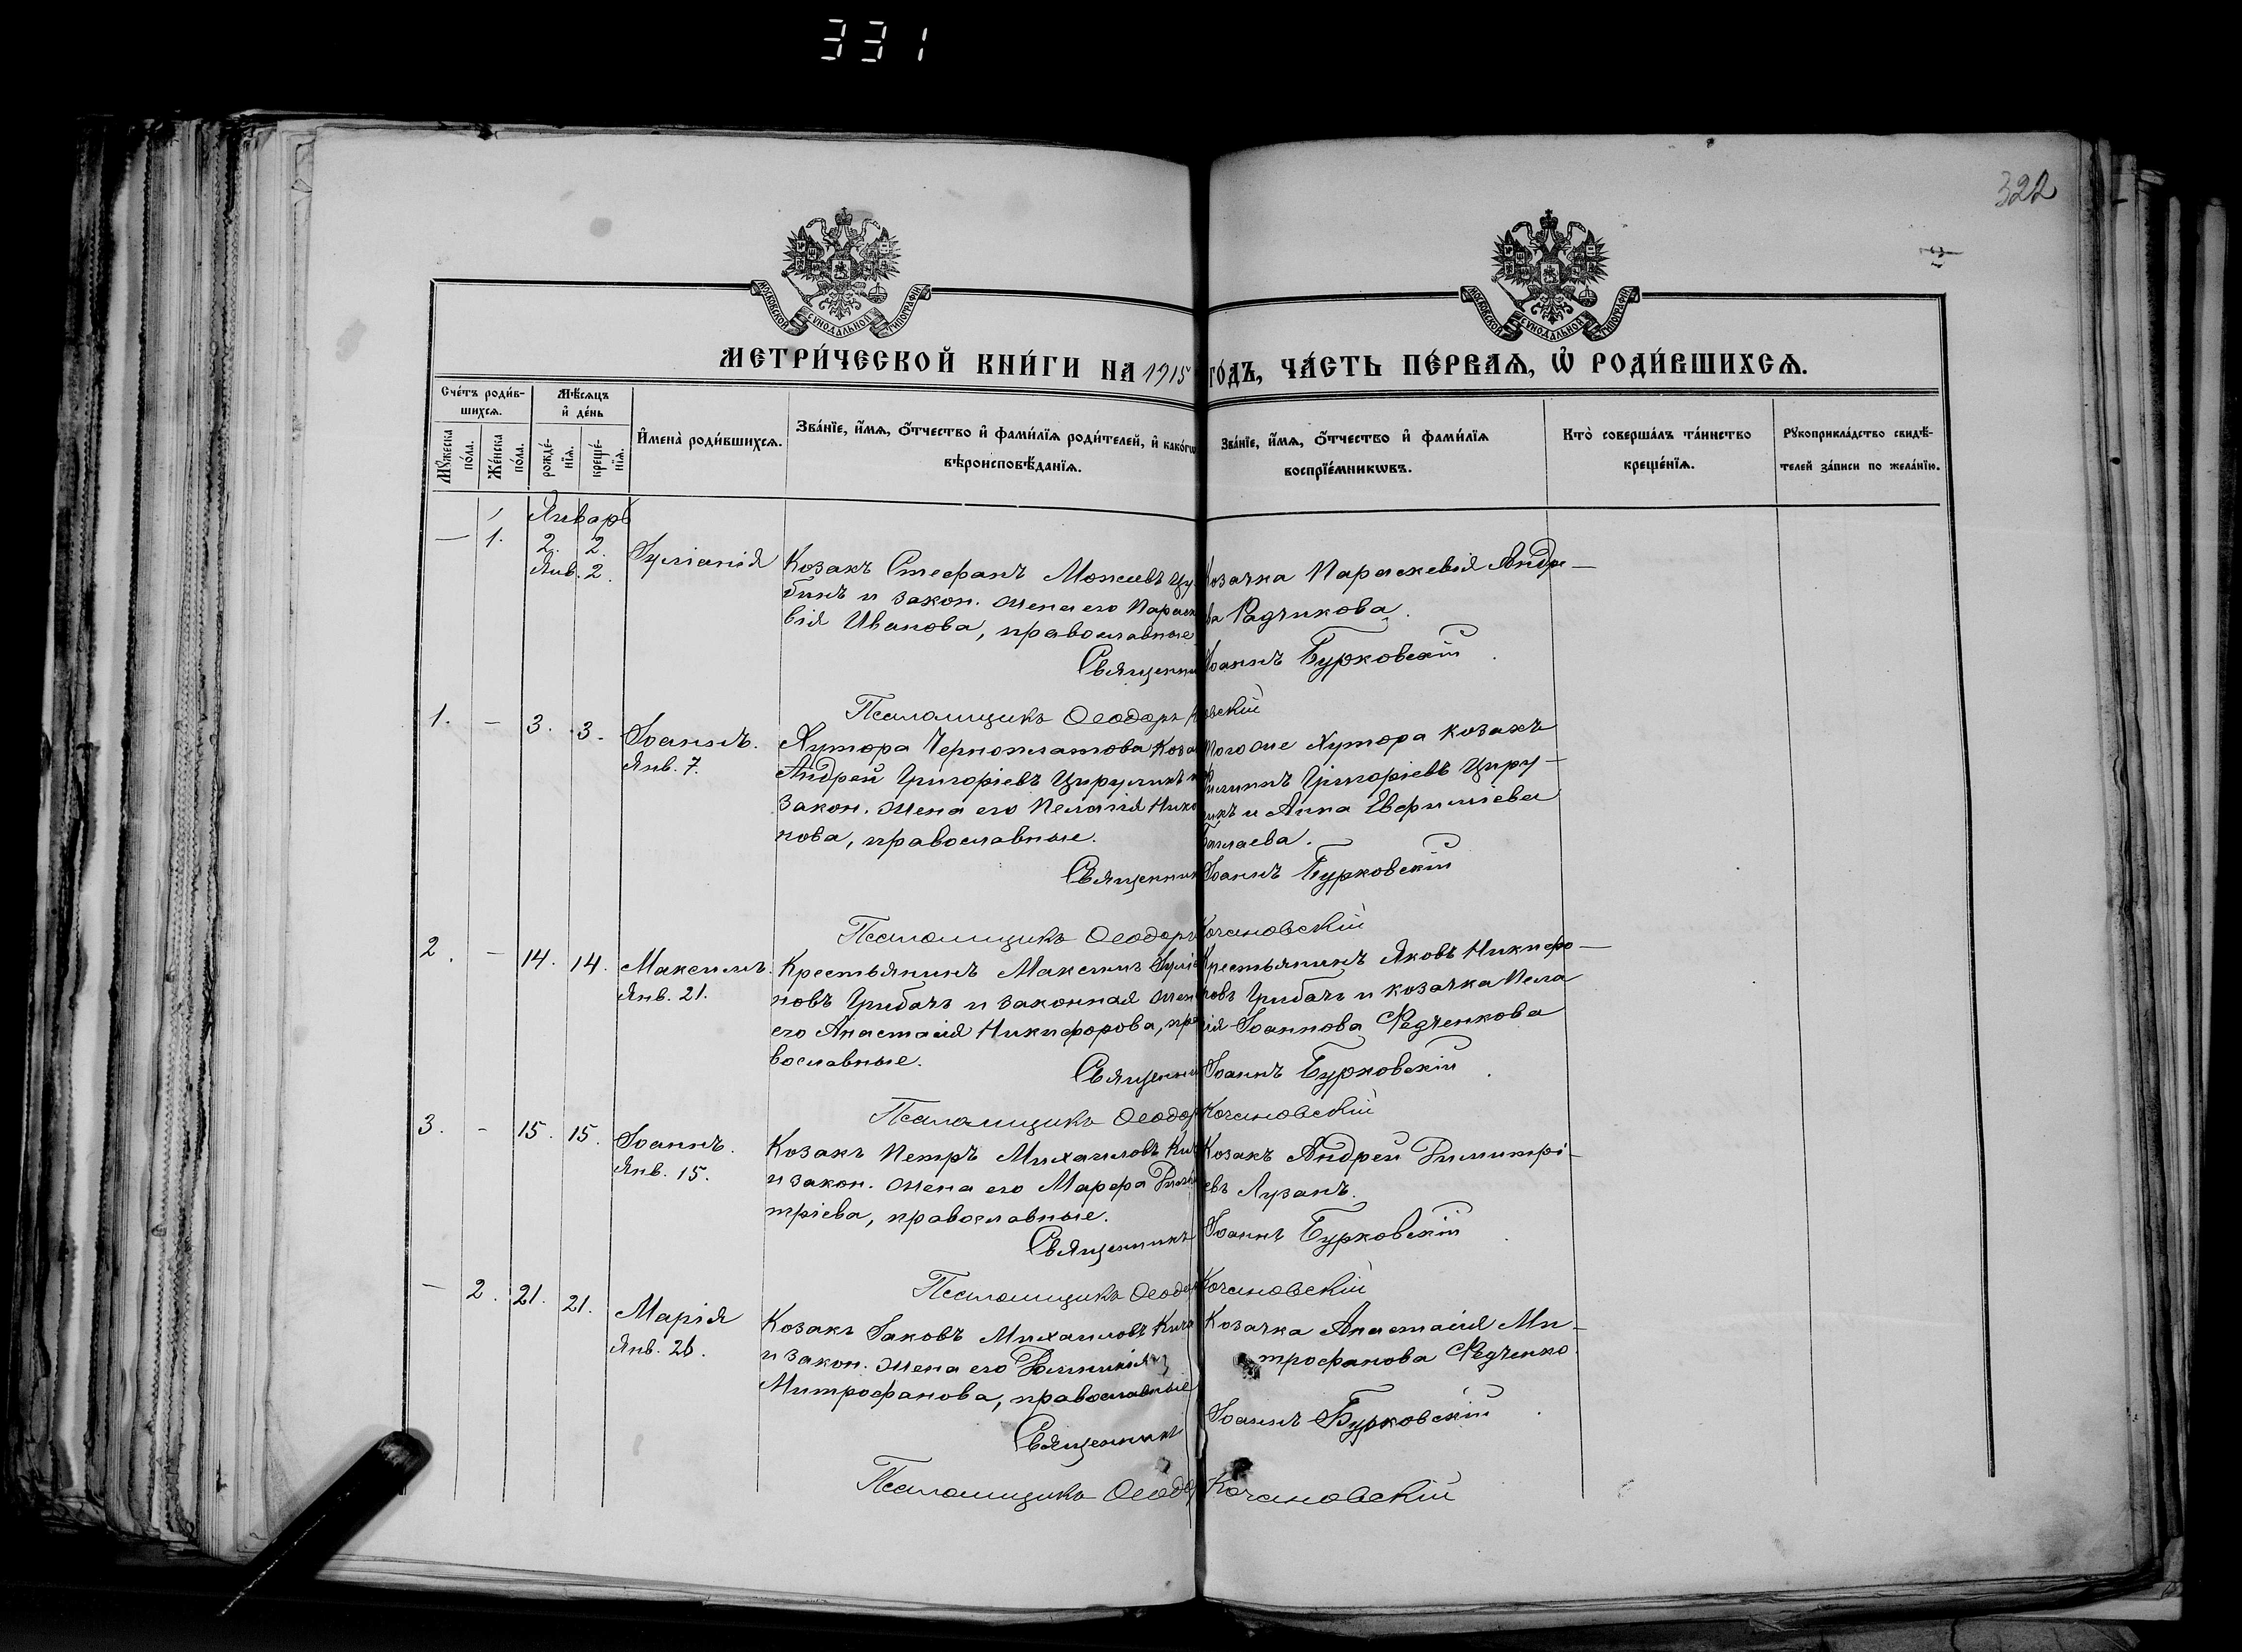 331
322
МОСКОВСКОЙ СУНОДАЛЬНОЙ ТИПОГРАФІИ
МОСКОВСКОЙ СУНОДАЛЬНОЙ ТИПОГРАФІИ
МЕТРИ́ЧЕСКОЙ КНИ́ГИ НА 1915 ГО́ДЪ, ЧА́СТЬ ПЕ́РВАѦ, Ѡ҆ РОДИ́ВШИХСѦ.
Сче́тъ роди́в-
шихсѧ.
Мѣ́сѧцъ
и҆ де́нь
Мꙋ́жеска
по́ла.
Же́нска
по́ла.
рожде́-
нїѧ.
креще́-
нїѧ.
И҆мена̀ роди́вшихсѧ.
Зва́нїе, и҆́мѧ, ѻ҆́тчество и҆ фами́лїѧ роди́телей, и҆ како́гѡ
вѣроисповѣ́данїѧ.
Зва́нїе, и҆́мѧ, ѻ҆́тчество и҆ фами́лїѧ
воспрїе́мникѡвъ.
Кто̀ соверша́лъ та́инство
креще́нїѧ.
Рꙋкоприкла́дство свидѣ́-
телей за́писи по жела́нїю.
Январь
— 1. 2. 2. Іуліанія
Янв. 2.
Козакъ Стефанъ Моисеевъ Цу
бинъ и закон. жена его Параск
вія Иванова, православные
Козачка Параскевія Андре-
ва Радчикова.
Священни Іоаннъ Бурковскій
Псаломщикъ Ѳеодоръ
овскій
1. — 3. 3. Іоаннъ.
Янв. 7.
Хутора Черноплатова Коза
Андрей Григоріевъ Цируликъ и
закон. жена его Пелагія Нико
нова, православные.
того же Хутора козакъ
Филиппъ Григоріевъ Циру-
ликъ и Анна Евфиміева
Баглаева.
Священник Іоаннъ Бурковскій
Псаломщикъ Ѳеодоръ Кочановскій
2. — 14. 14. Максимъ.
Янв. 21.
Крестьянинъ Максимъ Іуліа
новъ Грибачъ и законная жен
его Анастасія Никифорова, пра
вославные.
Крестьянинъ Яковъ Никифо-
ровъ Грибачъ и козачка Пела
гія Іоаннова Федченкова
Священни Іоаннъ Бурковскій
Псаломщикъ Ѳеодор Кочановскій
3. - 15. 15. Іоаннъ.
Янв. 15.
Козакъ Петръ Михаиловъ Кич
и закон. жена его Марфа Дими
тріева, православные.
Козакъ Андрей Димитрі-
евъ Лузанъ.
Священникъ Іоаннъ Бурковскій
Псаломщикъ Ѳеодор Кочановскій
— 2. 21. 21. Марія
Янв. 26.
Козакъ Іаковъ Михаиловъ Кича
и закон. жена его Домникія
Митрофанова, православные
Козачка Анастасія Ми-
трофанова Федченко
Священникъ Іоаннъ Бурковскій
Псаломщикъ Ѳеодор Кочановскій